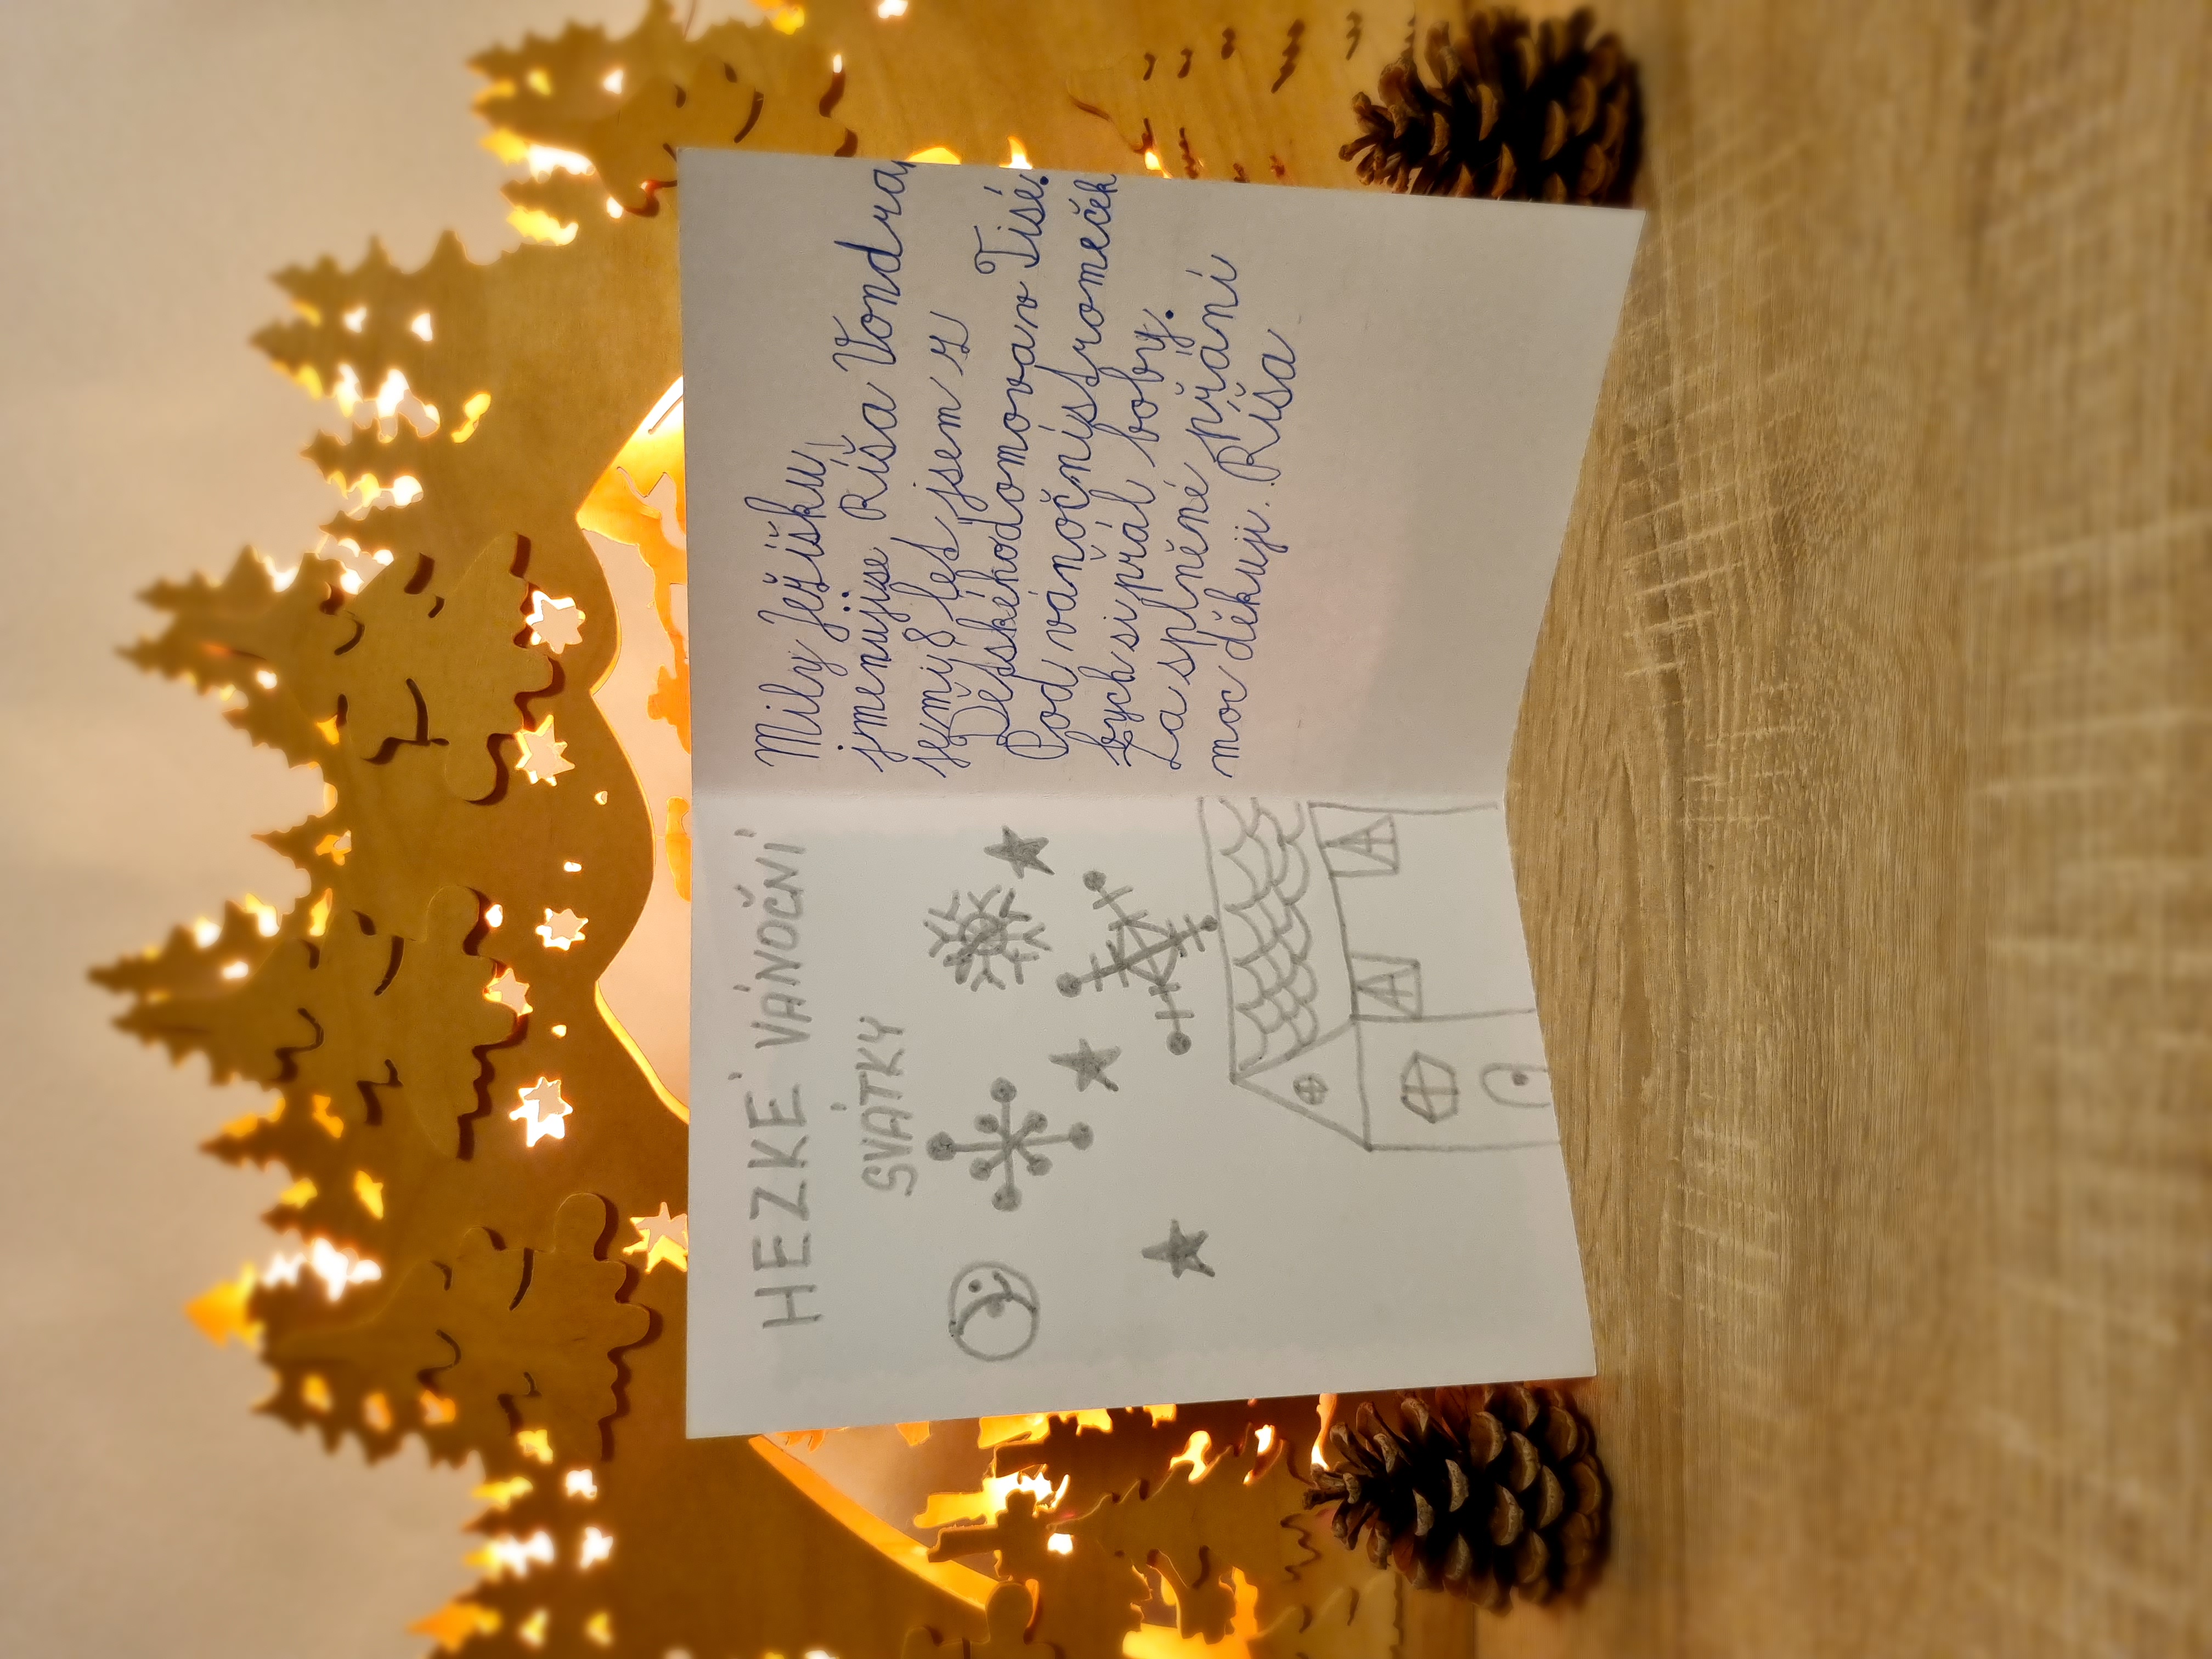 HEZKÉ VÁNOČNÍ
SVÁTKY
Milý Ježíšku,
jmenuji se Ríša Vondra,
je mi 8 let jsem z
Dětského domova v Tisé.
Pod vánoční stromeček
bych si přál boby.
Za splněné přání
moc děkuji. Ríša